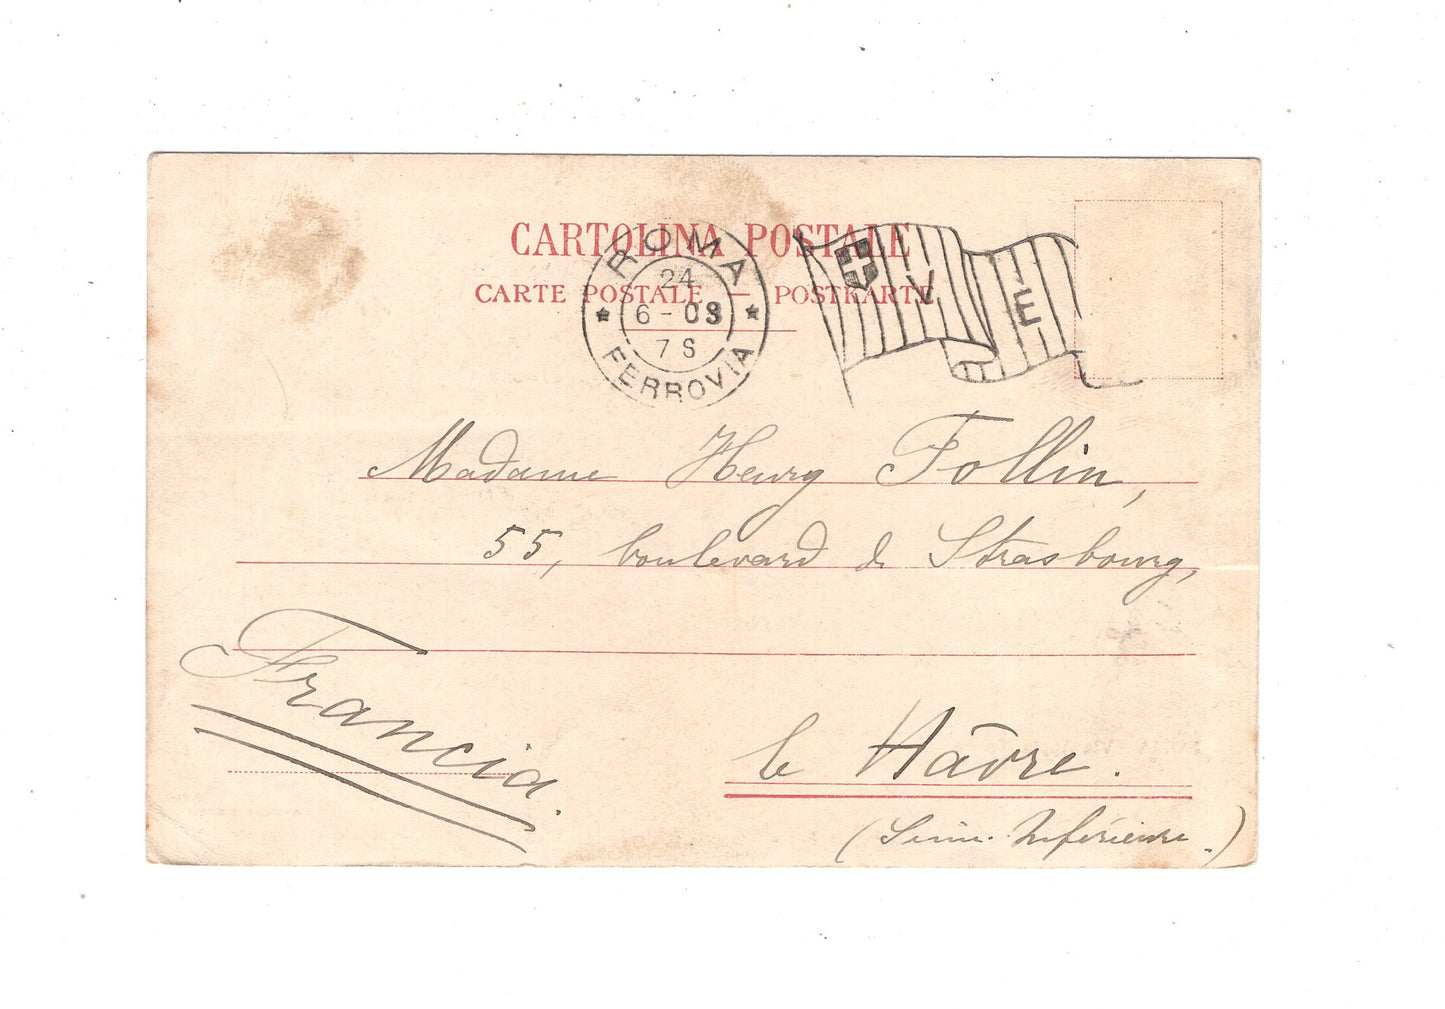 CARTOLINA POSTALE
CARTE POSTALE — POSTKARTE
ROMA
24
6 - 03
7 S
* FERROVIA *
V E
Madame Henry Follin,
55, boulevard de Strasbourg,
Francia.
le Hâvre.
(Seine-Inférieure.)